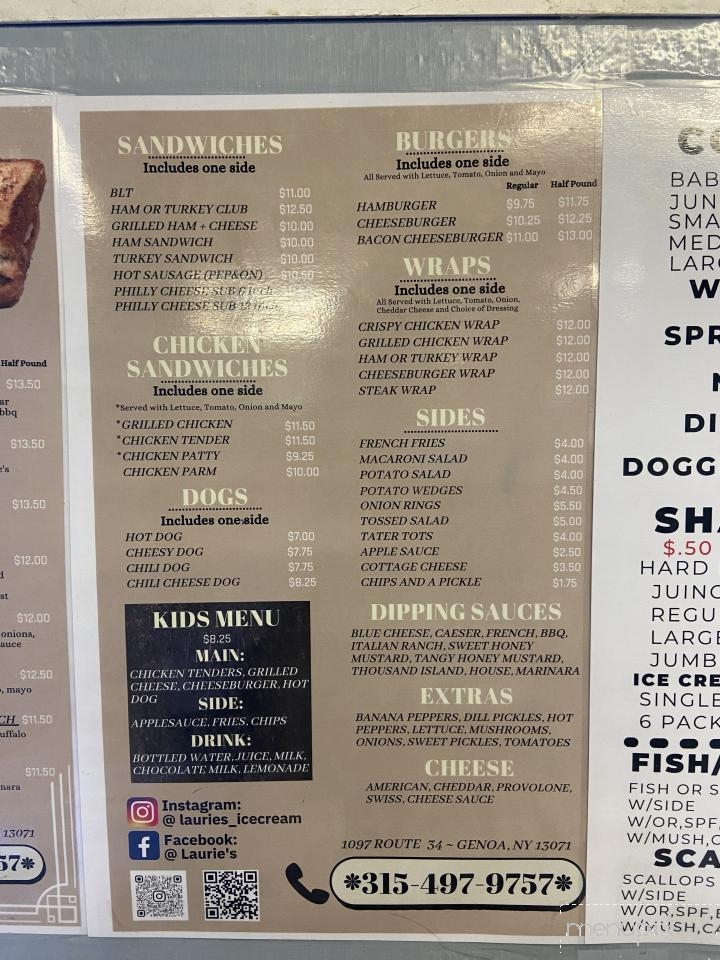 Half Pound
$13.50
ar
bbq
$13.50
e's
$13.50
$12.00
d
st
$12.00
onions,
auce
$12.50
, mayo
CH $11.50
uffalo
$11.50
nara
13071
57*
SANDWICHES
Includes one side
BLT $11.00
HAM OR TURKEY CLUB $12.50
GRILLED HAM + CHEESE $10.00
HAM SANDWICH $10.00
TURKEY SANDWICH $10.00
HOT SAUSAGE (PEP&ON) $10.50
PHILLY CHEESE SUB 6 inch
PHILLY CHEESE SUB 12 inch
CHICKEN
SANDWICHES
Includes one side
*Served with Lettuce, Tomato, Onion and Mayo
*GRILLED CHICKEN $11.50
*CHICKEN TENDER $11.50
*CHICKEN PATTY $9.25
CHICKEN PARM $10.00
DOGS
Includes one side
HOT DOG $7.00
CHEESY DOG $7.75
CHILI DOG $7.75
CHILI CHEESE DOG $8.25
KIDS MENU
$8.25
MAIN:
CHICKEN TENDERS, GRILLED
CHEESE, CHEESEBURGER, HOT
DOG
SIDE:
APPLESAUCE, FRIES, CHIPS
DRINK:
BOTTLED WATER, JUICE, MILK,
CHOCOLATE MILK, LEMONADE
Instagram:
@ lauries_icecream
Facebook:
@ Laurie's
BURGERS
Includes one side
All Served with Lettuce, Tomato, Onion and Mayo
Regular Half Pound
HAMBURGER $9.75 $11.75
CHEESEBURGER $10.25 $12.25
BACON CHEESEBURGER $11.00 $13.00
WRAPS
Includes one side
All Served with Lettuce, Tomato, Onion,
Cheddar Cheese and Choice of Dressing
CRISPY CHICKEN WRAP $12.00
GRILLED CHICKEN WRAP $12.00
HAM OR TURKEY WRAP $12.00
CHEESEBURGER WRAP $12.00
STEAK WRAP $12.00
SIDES
FRENCH FRIES $4.00
MACARONI SALAD $4.00
POTATO SALAD $4.00
POTATO WEDGES $4.50
ONION RINGS $5.50
TOSSED SALAD $5.00
TATER TOTS $4.00
APPLE SAUCE $2.50
COTTAGE CHEESE $3.50
CHIPS AND A PICKLE $1.75
DIPPING SAUCES
BLUE CHEESE, CAESER, FRENCH, BBQ,
ITALIAN RANCH, SWEET HONEY
MUSTARD, TANGY HONEY MUSTARD,
THOUSAND ISLAND, HOUSE, MARINARA
EXTRAS
BANANA PEPPERS, DILL PICKLES, HOT
PEPPERS, LETTUCE, MUSHROOMS,
ONIONS, SWEET PICKLES, TOMATOES
CHEESE
AMERICAN, CHEDDAR, PROVOLONE,
SWISS, CHEESE SAUCE
1097 ROUTE 34 ~ GENOA, NY 13071
*315-497-9757*
CO
BAB
JUN
SMA
MED
LARG
W
SPR
N
DI
DOGG
SHA
$.50
HARD
JUINO
REGU
LARGE
JUMB
ICE CRE
SINGLE
6 PACK
FISH/
FISH OR S
W/SIDE
W/OR,SPF,
W/MUSH,C
SCA
SCALLOPS
W/SIDE
W/OR,SPF,
W/MUSH,CA